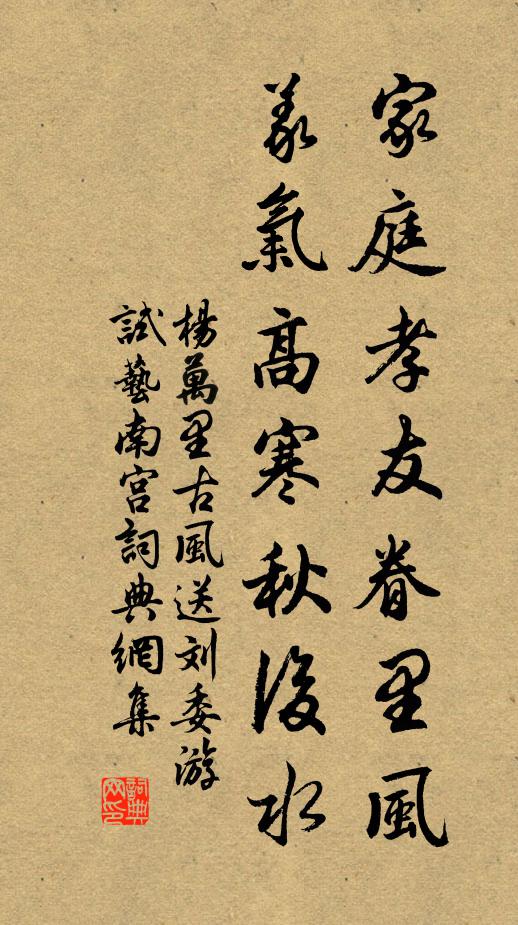 家庭孝友眷里風
義氣高寒秋後水
楊萬里古風送刘委游
試藝南宫詞典網集
詞典网印